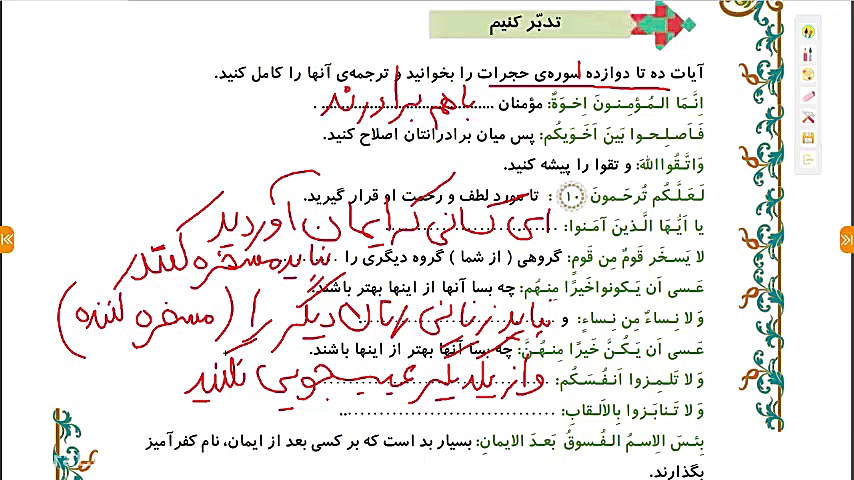 تدبّر کنیم
آیات ده تا دوازده سوره‌ی حجرات را بخوانید و ترجمه‌ی آنها را کامل کنید.
اِنَّمَا الـمُـؤمِـنـونَ اِخـوَةٌ: مؤمنان باهم برادرند .
فَـاَصـلِـحـوا بَینَ اَخَـوَیکُم: پس میان برادرانتان اصلاح کنید.
وَاتَّـقُوااللهَ: و تقوا را پیشه کنید.
لَـعَـلَّـکُم تُرحَـمونَ ﴿۱۰﴾ : تا مورد لطف و رحمت او قرار گیرید.
یا اَیُّـهَا الَّـذینَ آمَـنوا: ای کسانی که ایمان آوردید
لا یَسـخَر قَومٌ مِن قَومٍ: گروهی ( از شما ) گروه دیگری را نباید مسخره کنند
عَـسی اَن یَـکونواخَیرًا مِنـهُم: چه بسا آنها از اینها بهتر باشند.
وَ لا نِـساءٌ مِن نِـساءٍ: و نباید زنانی زنان دیگر را (مسخره کننده)
عَـسی اَن یَـکُـنَّ خَیرًا مِنـهُـنَّ: چه بسا آنها بهتر از اینها باشند.
وَ لا تَـلـمِـزوا اَنـفُـسَـکُم: و از یکدیگر عیبجویی نکنید
وَ لا تَـنابَـزوا بِالاَلـقابِ:
بِئسَ الاِسمُ الـفُـسوقُ بَعـدَ الایمانِ: بسیار بد است که بر کسی بعد از ایمان، نام کفرآمیز
بگذارند.